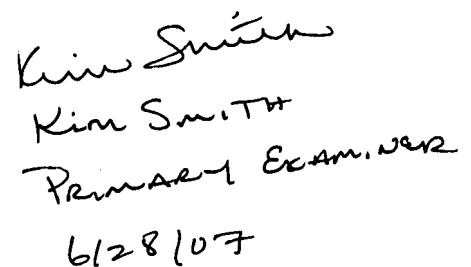 Kim Smith
Kim Smith
Primary Examiner
6/28/07